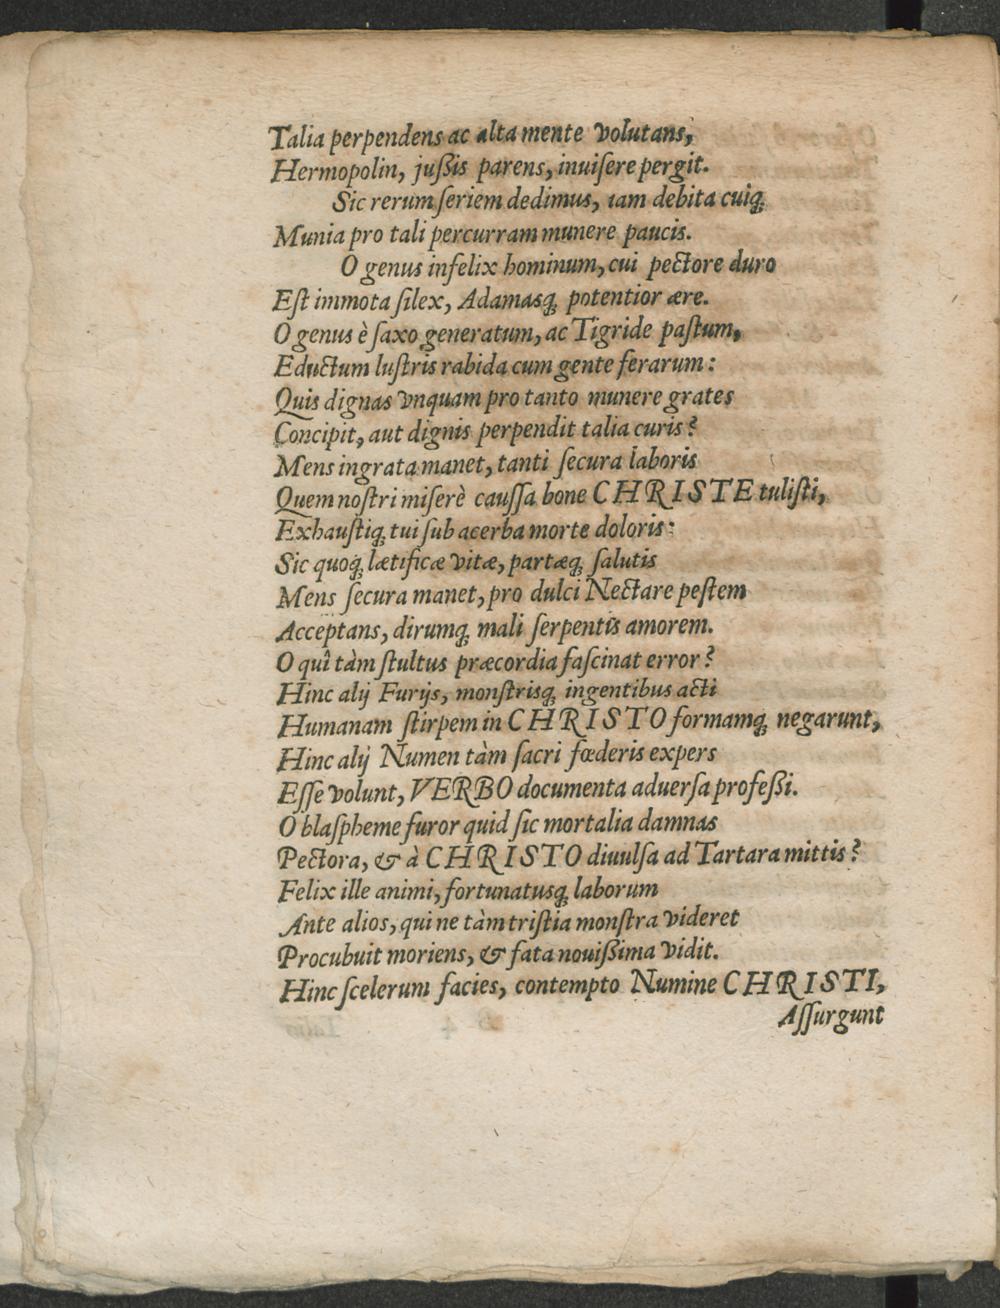 Talia perpendens ac alta mente volutans,
Hermopolin, jußis parens, inuiſere pergit.
Sic rerum ſeriem dedimus, iam debita cuiq;
Munia pro tali percurram munere paucis.
O genus infelix hominum, cui pectore duro
Eſt immota ſilex, Adamasq; potentior ære.
O genus è ſaxo generatum, ac Tigride paſtum,
Eductum luſtris rabida cum gente ferarum:
Quis dignas vnquam pro tanto munere grates
Concipit, aut dignis perpendit talia curis?
Mens ingrata manet, tanti ſecura laboris
Quem noſtri miſerè cauſſa bone CHRISTE tuliſti,
Exhauſtiq; tui ſub acerba morte doloris:
Sic quoq; lætificæ vitæ, partæq; ſalutis
Mens ſecura manet, pro dulci Nectare peſtem
Acceptans, dirumq; mali ſerpentis amorem.
O quî tàm ſtultus præcordia faſcinat error?
Hinc alij Furijs, monſtrisq; ingentibus acti
Humanam ſtirpem in CHRISTO formamq; negarunt,
Hinc alij Numen tàm ſacri fœderis expers
Eſſe volunt, VERBO documenta aduerſa profeßi.
O blaſpheme furor quid ſic mortalia damnas
Pectora, & à CHRISTO diuulſa ad Tartara mittis?
Felix ille animi, fortunatusq; laborum
Ante alios, qui ne tàm triſtia monſtra videret
Procubuit moriens, & fata nouißima vidit.
Hinc ſcelerum facies, contempto Numine CHRISTI,
Aſſurgunt